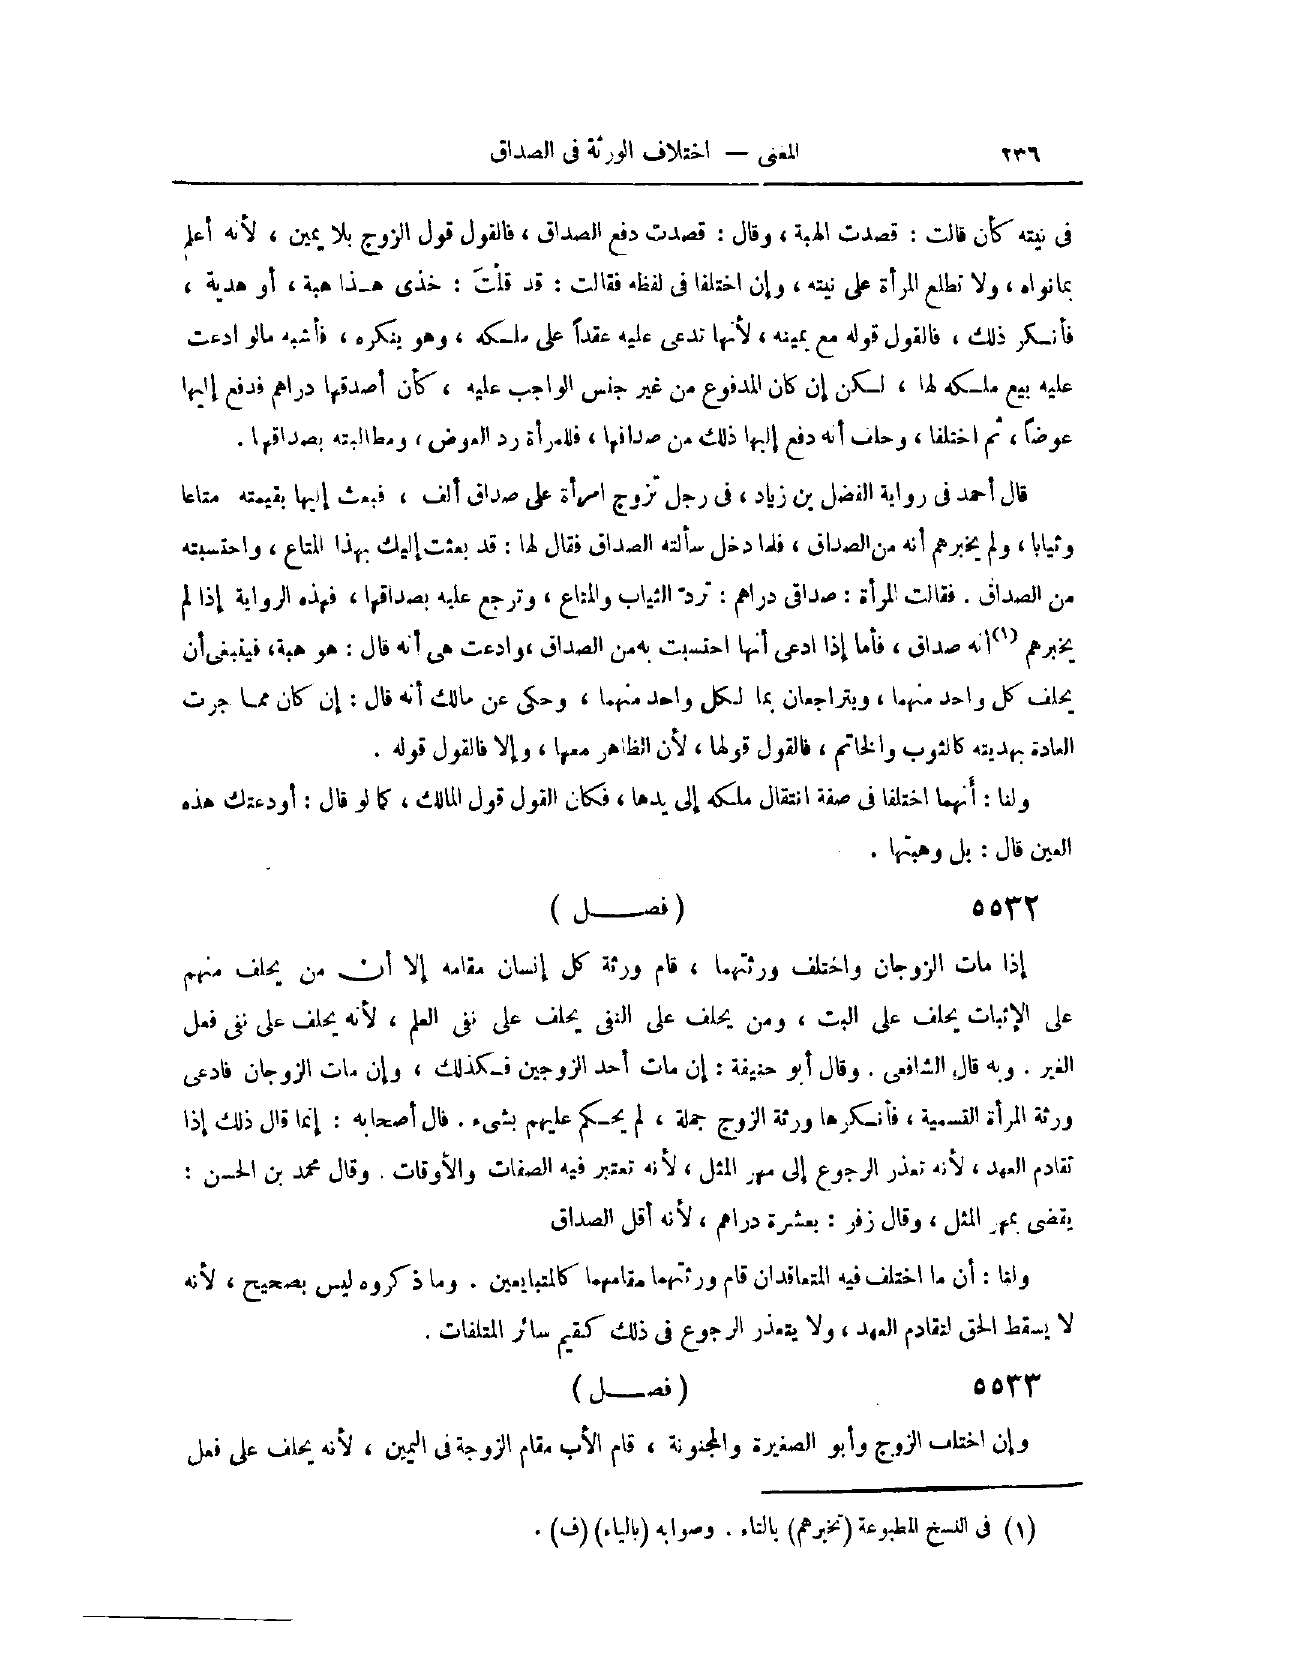 ٢٣٦ المغنى — اختلاف الورثة فى الصداق
فى نيته كأن قالت : قصدت الهبة ، وقال : قصدت دفع الصداق ، فالقول قول الزوج بلا يمين ، لأنه أعلم
بما نواه ، ولا تطلع المرأة على نيته ، وإن اختلفا فى لفظه فقالت : قد قلْتَ : خذى هـذا هبة ، أو هدية ،
فأنـكر ذلك ، فالقول قوله مع يمينه ، لأنها تدعى عليه عقداً على ملـكه ، وهو ينكره ، فأشبه مالو ادعت
عليه بيع ملـكه لها ، لـكن إن كان المدفوع من غير جنس الواجب عليه ، كأن أصدقها دراهم فدفع إليها
عوضاً ، ثم اختلفا ، وحلف أنه دفع إليها ذلك من صداقها ، فللمرأة رد العوض ، ومطالبته بصداقها .
قال أحمد فى رواية الفضل بن زياد ، فى رجل تزوج امرأة على صداق ألف ، فبعث إليها بقيمته متاعا
وثيابا ، ولم يخبرهم أنه من الصداق ، فلما دخل سألته الصداق فقال لها : قد بعثت إليك بهذا المتاع ، واحتسبته
من الصداق . فقالت المرأة : صداقى دراهم : تردّ الثياب والمتاع ، وترجع عليه بصداقها ، فهذه الرواية إذا لم
يخبرهم (١) أنه صداق ، فأما إذا ادعى أنها احتسبت به من الصداق ، وادعت هى أنه قال : هو هبة، فينبغى أن
يحلف كل واحد منهما ، ويتراجعان بما لـكل واحد منهما ، وحكى عن مالك أنه قال : إن كان ممـا جرت
العادة بهديته كالثوب والخاتم ، فالقول قولها ، لأن الظاهر معها ، وإلا فالقول قوله .
ولنا : أنهما اختلفا فى صفة انتقال ملكه إلى يدها ، فكان القول قول المالك ، كما لو قال : أودعتك هذه
العين قال : بل وهبتها .
٥٥٣٢ ( فصـــــل )
إذا مات الزوجان واختلف ورثتهما ، قام ورثة كل إنسان مقامه إلا أن من يحلف منهم
على الإثبات يحلف على البت ، ومن يحلف على النفى يحلف على نفى العلم ، لأنه يحلف على نفى فعل
الغير . وبه قال الشافعى . وقال أبو حنيفة : إن مات أحد الزوجين فـكذلك ، وإن مات الزوجان فادعى
ورثة المرأة التسمية ، فأنـكرها ورثة الزوج جملة ، لم يحـكم عليهم بشىء . قال أصحابه : إنما قال ذلك إذا
تقادم العهد ، لأنه تعذر الرجوع إلى مهر المثل ، لأنه تعتبر فيه الصفات والأوقات . وقال محمد بن الحسن :
يقضى بمهر المثل ، وقال زفر : بعشرة دراهم ، لأنه أقل الصداق
ولنا : أن ما اختلف فيه المتعاقدان قام ورثتهما مقامهما كالمتبايعين . وما ذكروه ليس بصحيح ، لأنه
لا يسقط الحق لتقادم العهد ، ولا يتعذر الرجوع فى ذلك كقيم سائر المتلفات .
٥٥٣٣ ( فصـــل )
وإن اختلف الزوج وأبو الصغيرة والمجنونة ، قام الأب مقام الزوجة فى اليمين ، لأنه يحلف على فعل
(١) فى النسخ المطبوعة (تخبرهم) بالتاء . وصوابه (بالياء) (ف) .